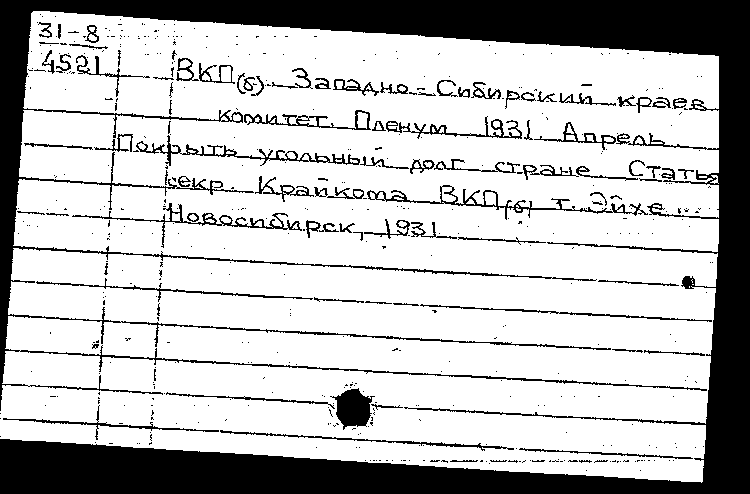 31-8
4521
ВКП(б). Западно-Сибирский краев
комитет. Пленум. 1931. Апрель.
Покрыть угольный долг стране. Статья
секр. Крайкома ВКП(б) т. Эйхе...
Новосибирск, 1931